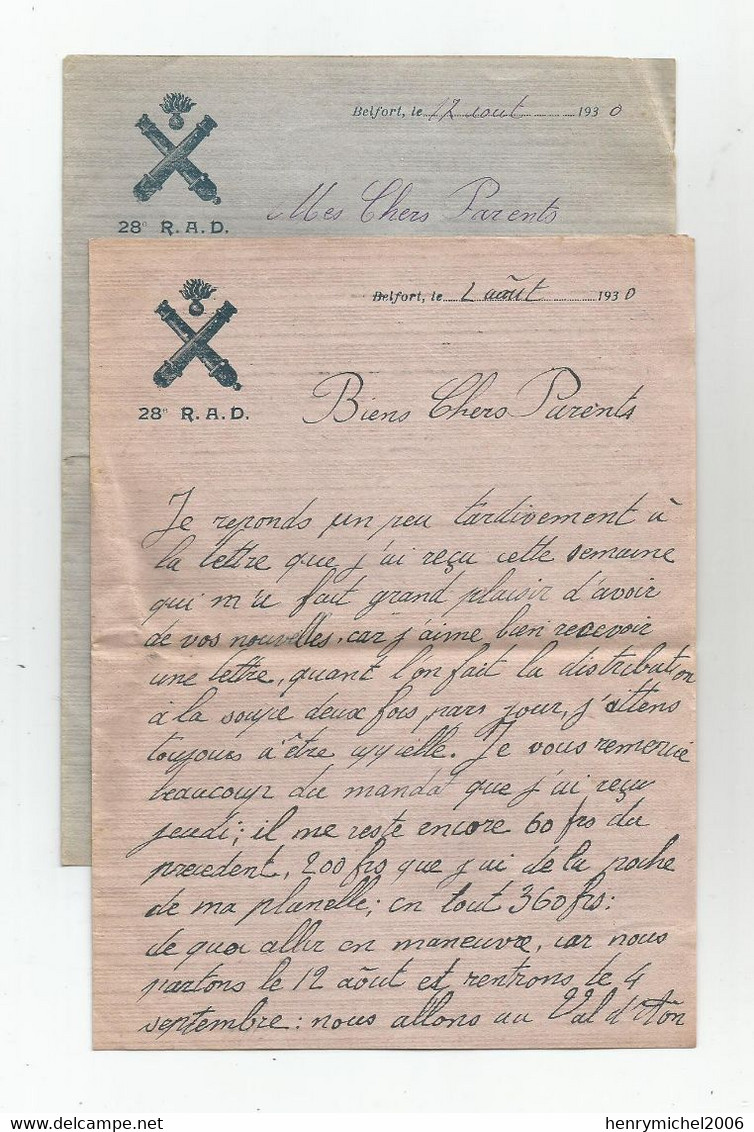 Belfort, le 17 aout 1930
28e R.A.D.
Mes Chers Parents
Belfort, le 2 août 1930
28e R.A.D.
Biens Chers Parents
Je reponds un peu tardivement à
la lettre que j'ai reçu cette semaine
qui m'a fait grand plaisir d'avoir
de vos nouvelles, car j'aime bien recevoir
une lettre, quant l'on fait la distribution
à la soupe deux fois pars jour, j'attens
toujours à être appelle. Je vous remercie
beaucoup du mandat que j'ai reçu
jeudi; il me reste encore 60 frs du
precedent, 200 frs que j'ai de la poche
de ma planelle; en tout 360 frs:
de quoi aller en maneuvre, car nous
partons le 12 août et rentrons le 4
septembre: nous allons au Val d'Aôn
henrymichel2006